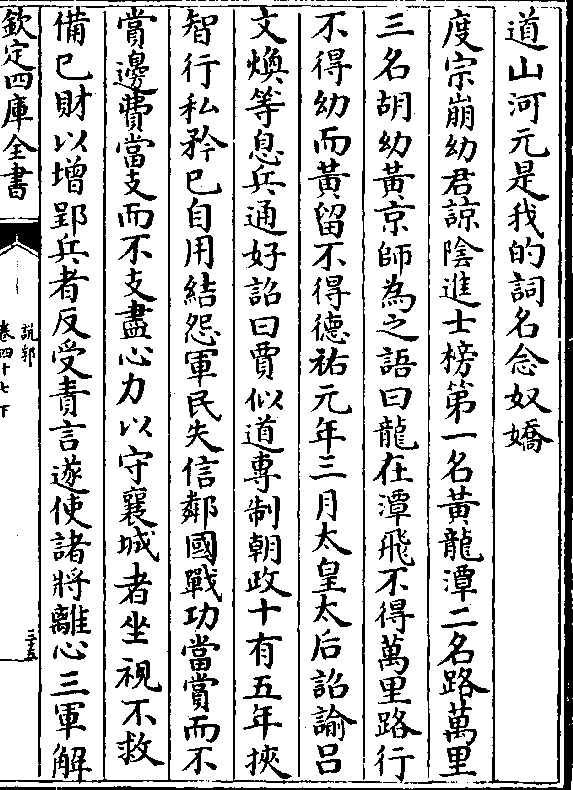 道山河元是我的詞名念奴嬌
度宗崩幼君諒陰進士榜第一名黃龍潭二名路萬里
三名胡幼黃京師為之語曰龍在潭飛不得萬里路行
不得幼而黃留不得德祐元年三月太皇太后詔諭吕
文煥等息兵通好詔曰賈似道專制朝政十有五年挾
智行私矜已自用結怨軍民失信鄰國戰功當賞而不
賞邊費當支而不支盡心力以守襄城者坐視不救
備已財以增郢兵者反受責言遂使諸將離心三軍解
欽定四庫全書
說郛
卷四十七下
三五